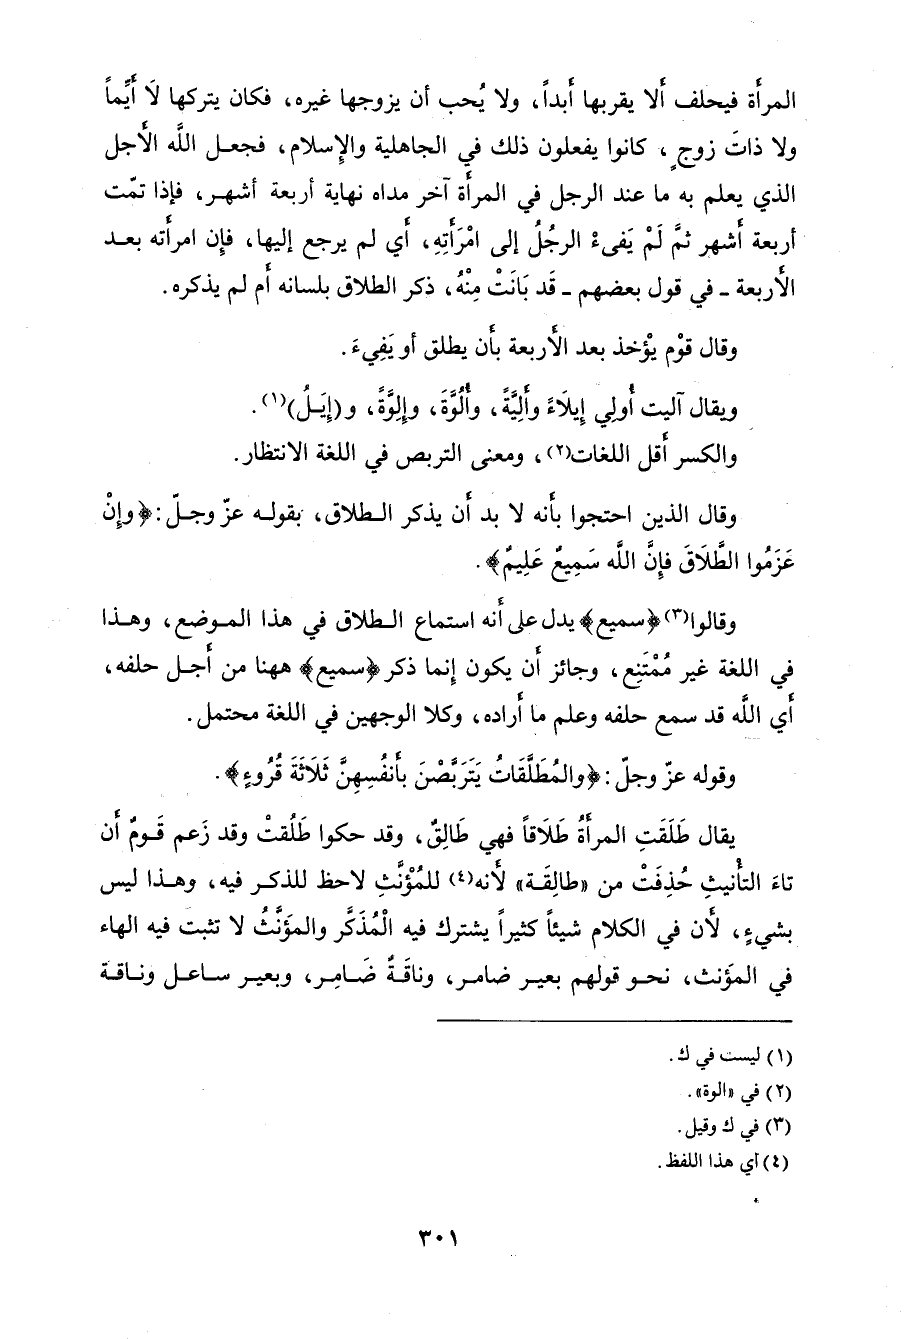 المرأَة فيحلف أَلا يقربها أَبداً، ولا يُحب أن يزوجها غيره، فكان يتركها لَا أَيِّماً
ولا ذاتَ زوجٍ، كانوا يفعلون ذلك في الجاهلية والإِسلام، فجعل اللَّه الأَجل
الذي يعلم به ما عند الرجل في المرأَة آخر مداه نهاية أربعة أشهر، فإذا تمّت
أربعة أَشهر ثمَّ لَمْ يَفىءْ الرجُلُ إلى امْرَأَتِهِ، أَي لم يرجع إليها، فإِن امرأته بعد
الأَربعة ـ في قول بعضهم ـ قَد بَانَتْ مِنْهُ، ذكر الطلاق بلسانه أَم لم يذكره.
وقال قوْم يؤْخذ بعد الأَربعة بأَن يطلق أو يَفِيءَ.
ويقال آليت أُولِي إِيلَاءً وأَلِيَّةً، وأُلُوَّةَ، وإِلوَّةً، و(إِيَـلُ)(١).
والكسر أَقل اللغات(٢)، ومعنى التربص في اللغة الانتظار.
وقال الذين احتجوا بأَنه لا بد أَن يذكر الطلاق، بقوله عزّ وجلّ: ﴿وإِنْ
عَزَمُوا الطَّلَاقَ فإِنَّ اللَّه سَمِيعٌ عَلِيمٌ﴾.
وقالوا(٣) ﴿سميع﴾ يدل على أَنه استماع الطلاق في هذا الموضع، وهذا
في اللغة غير مُمْتَنِع، وجائز أَن يكون إِنما ذكر ﴿سميع﴾ ههنا من أَجل حلفه،
أَي اللَّه قد سمع حلفه وعلم ما أَراده، وكلا الوجهين في اللغة محتمل.
وقوله عزّ وجلّ: ﴿والمُطَلَّقَاتُ يَتَرَبَّصْنَ بأَنفُسِهِنَّ ثَلَاثَةَ قُرُوءٍ﴾.
يقال طَلَقَتِ المرأَةُ طَلَاقاً فهي طَالِقٌ، وقد حكوا طَلُقتْ وقد زَعم قَومٌ أَن
تاءَ التأْنيثِ حُذِفَتْ من «طالِقَة» لأَنه(٤) للمُؤنَّثِ لاحظ للذكر فيه، وهذا ليس
بشيءٍ، لأَن في الكلام شيئاً كثيراً يشترك فيه الْمُذَكَّر والمؤَنَّثُ لا تثبت فيه الهاء
في المؤَنث، نحو قولهم بعير ضامر، وناقَةٌ ضَامِر، وبعير ساعل وناقة
(١) ليست في ك.
(٢) في «الوة».
(٣) في ك وقيل.
(٤) أي هذا اللفظ.
٣٠١